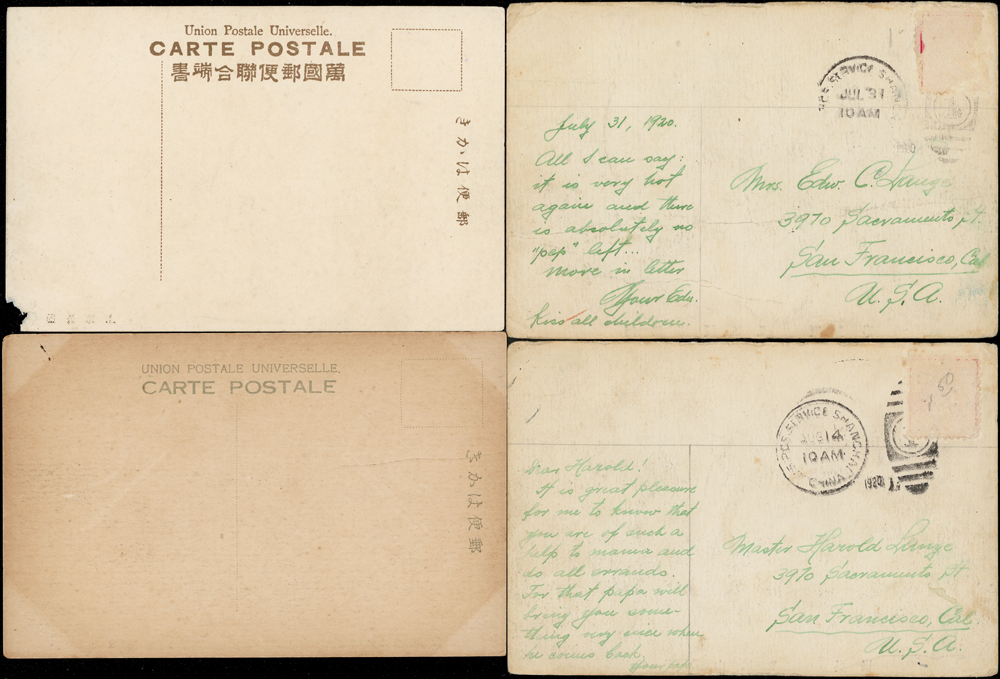 Union Postale Universelle.
CARTE POSTALE
萬國郵便聯合端書
郵便はかき
POS. SERVICE SHANG
JUL 31
10AM
July 31, 1920.
All I can say:
it is very hot
again and there
is absolutely no
"pep" left...
more in letter
Your Edw.
Kiss all children.
Mrs. Edw. C. Lange
3970 Sacramento St.
San Francisco, Cal
U. S. A.
UNION POSTALE UNIVERSELLE.
CARTE POSTALE
郵便はかき
POS. SERVICE SHANGHAI
AUG 14
10AM
CHINA
1920
Dear Harold!
It is great pleasure
for me to know that
you are of such a
help to mama and
do all errands.
For that papa will
bring you some-
thing very nice when
he comes back.
Your
Master Harold Lange
3970 Sacramento St
San Francisco, Cal.
U. S. A.